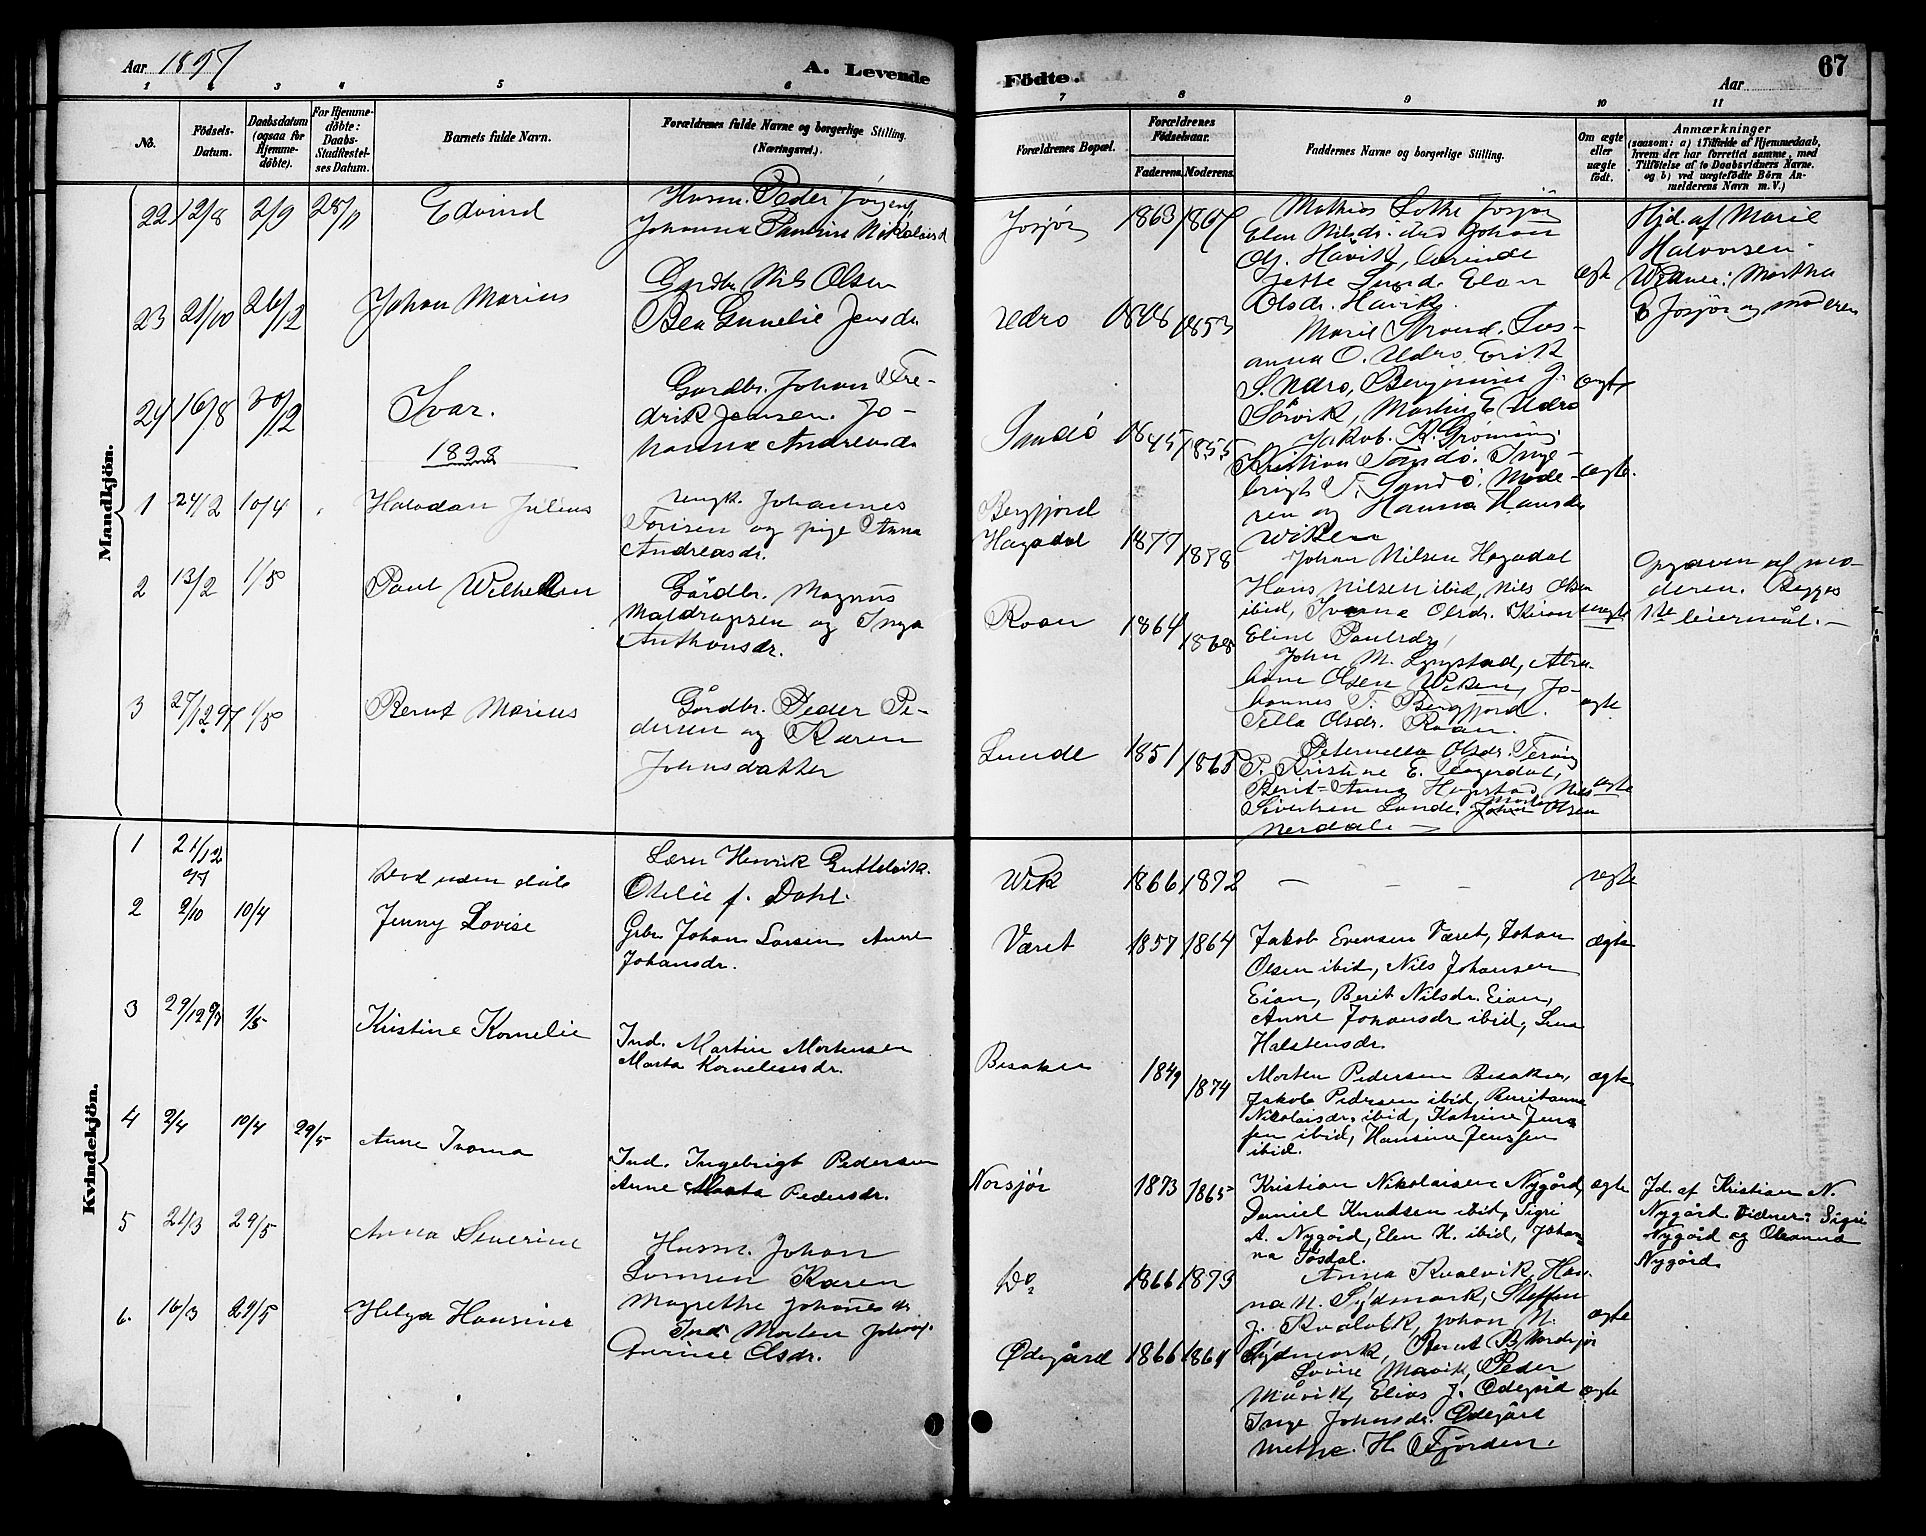 Aar 1897
A. Levende
Födte.
Aar
67
1 2 3 4 5 6 7 8 9 10 11
No.
Födsels-Datum.
Daabsdatum (ogsaa for Hjemmedöbte).
For Hjemmedöbte: Daabs-Stadfæstelses Datum.
Barnets fulde Navn.
Forældrenes fulde Navne og borgerlige Stilling. (Næringsvei.)
Forældrenes Bopæl.
Forældrenes Födselsaar.
Faderens. Moderens.
Faddernes Navne og borgerlige Stilling.
Om ægte eller uægte födt.
Anmærkninger
(saasom: a) i Tilfælde af Hjemmedaab, hvem der har forrettet samme, med Tilföielse af to Daabsvidners Navne. og b) ved uægtefödte Börn Anmelderens Navn m. V.)
Mandkjön.
22 12/8 2/9 28/11 Edvind
Husm. Peder Jörgens.
Johanna Pauline Nikolaisd
Josjör 1863 1867
Mathias Josjör
Elen Nilsdr. ibid Johan
Olj. Håvik,
Jette Lund. Elen
Olsdr. Håvik.
ægte
Hjd. af Marie
Halvorsen.
Vidner: Martha
Josjör og moderen
23 21/10 26/12 Johan Marius
Gårdbr. Nils Olsen
Bea Gunelie Jensdr.
Udro 1848 1853
Marie Strand. Susanna O. Udro, Erik
S. Udro, Benjamin J.
Sörvik, Martin E Udro
ægte
24 16/8 30/12 Ivar.
Gårdbr. Johan Fredrik Jensen. Johanna Andreasdr.
Sandö 1845 1855
Jakob. K. Gröning.
Kristian Sandö. Ingebrigt T. Sandö. Moderen og Hanna Hansdr
Wiken
ægte.
1898
1 24/2 10/4 Halvdan Julius
Ungk. Johannes
Torisen og pige Anna
Andreasdr.
Bergfjord
Hagadal 1877 1878
Johan Nilsen Hagadal
Hans Nilsen ibid, Nils Olsen
ibid, Ivarna Olsdr. Kiran
Eline Paulsdr,
uægte
Opgaven af moderen. Begges
1ste leiermål.-
2 13/2 1/5 Paul Wilhelm
Gårdbr. Magnus
Maldrupsen og Inga
Anthonsdr.
Roan 1864 1868
John M. Lyngstad, Abraham Olsen Wiken, Johannes T. Bergfjord.
Tella Olsdr. Roan.
ægte
3 27/12 97 1/5 Bernt Marius
Gårdbr. Peder Pedersen og Karen
Johnsdatter
Lunde 1851 1865
Peternella Olsdr. Teröng
P. Kristine E. Hagerdal,
Berit-Anna Hopstad, Nils
Sivertsen Lunde. Morten Olsen
Nerdal. -
ægte
Kvindekjön.
1 21/12 97 död uden dåb
Lærer Henrik Guttelvik.
Otelie f. Dahl.
Wik 1866 1872 - - - ægte
2 2/10 10/4 Jenny Lovise
Grbr. Johan Larsen Anne
Johansdr.
Været 1857 1864
Jakob Evensen Været, Johan
Olsen ibid, Nils Johansen
Eian, Berit Nilsdr. Eian,
Anne Johansdr ibid, Lina
Halstensdr.
ægte
3 29/12 97 1/5 Kristine Kornelie
Ind. Martin Mortensen
Marta Kornelesesdr.
Besaker 1849 1874
Morten Pedersen Besaker,
Jakob Pedersen ibid, Beritanna
Nikolaisdr. ibid, Katrine Jenssen ibid, Hansine Jenssen
ibid.
ægte
4 2/4 10/4 29/5 Anne Ivarna
Ind. Ingebrigt Pedersen
Anne Marta Pedersdr.
Norsjör 1873 1865
Kristian Nikolaisen Nygård,
Daniel Knudsen ibid, Sigri
A. Nygård, Elen K. ibid, Johanna Tösdal.
ægte
Jd. af Kristian N.
Nygård. Vidner: Sigri
Nygård og Oleanna
Nygård.
5 21/3 29/5 Anna Severine
Husm. Johan
Lornsen Karen
Magrethe Johannesdr
Do 1866 1873
Anna Kvalvik, Hanna N. Sydmark, Steffen
J. Kvalvik, Johan N.
Sydmark, Bernt B. Nordsjör
ægte
6. 16/3 29/5 Helga Hansine
Ind. Morten Johns.
Gurine Olsdr.
Ödegård 1866 1864
Lovise Måvik, Peder
Måvik, Elias J. Ödegård
Inge Johnsdr. Ödegård
Methe. H. Fjorden.
ægte